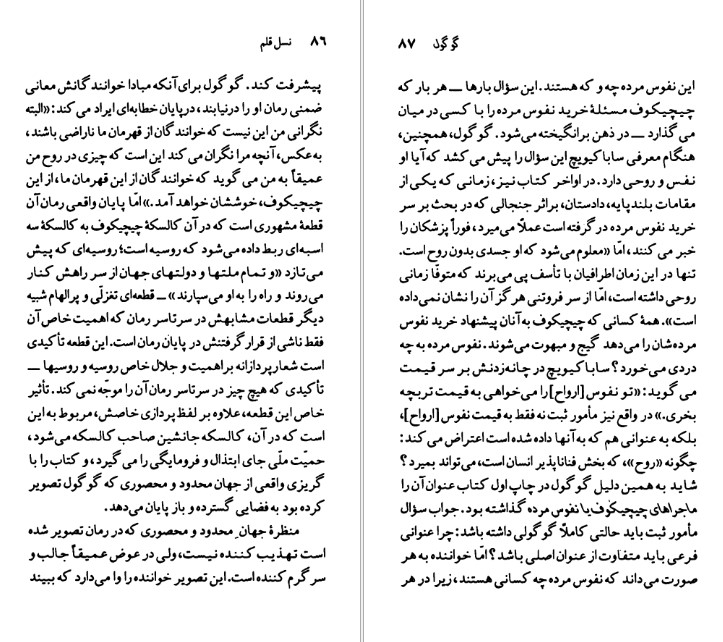 ۸۶ نسل قلم
پیشرفت کند. گوگول برای آنکه مبادا خوانندگانش معانی
ضمنی رمان او را درنیابند، درپایان خطابه‌ای ایراد می‌کند: «البته
نگرانی من این نیست که خوانندگان از قهرمان ما ناراضی باشند،
به‌عکس، آنچه مرا نگران می‌کند این است که چیزی در روح من
عمیقاً به من می‌گوید که خوانندگان از این قهرمان ما، از این
چیچیکوف، خوششان خواهد آمد.» امّا پایان واقعی رمان آن
قطعهٔ مشهوری است که در آن کالسکهٔ چیچیکوف به کالسکهٔ سه
اسبه‌ای ربط داده می‌شود که روسیه است؛ روسیه‌ای که پیش
می‌تازد «و تمام ملتها و دولتهای جهان از سر راهش کنار
می‌روند و راه را به او می‌سپارند» ــ قطعه‌ای تغزّلی و پرالهام شبیه
دیگر قطعات مشابهش در سرتاسر رمان که اهمیت خاص آن
فقط ناشی از قرارگرفتنش در پایان رمان است. این قطعه تأکیدی
است شعارپردازانه براهمیت و جلال خاص روسیه و روسیها ــ
تأکیدی که هیچ چیز در سرتاسر رمان آن را موجّه نمی‌کند. تأثیر
خاص این قطعه، علاوه بر لفظ پردازی خاصش، مربوط به این
است که در آن، کالسکه جانشین صاحب کالسکه می‌شود،
حمیّت ملّی جای ابتذال و فرومایگی را می‌گیرد، و کتاب را با
گریزی واقعی از جهان محدود و محصوری که گوگول تصویر
کرده بود به فضایی گسترده و باز پایان می‌دهد.
منظرهٔ جهانِ محدود و محصوری که در رمان تصویر شده
است تهذیب کننده نیست، ولی در عوض عمیقاً جالب و
سرگرم کننده است. این تصویر خواننده را وا می‌دارد که ببیند
گوگول ۸۷
این نفوس مرده چه و که هستند. این سؤال بارها ــ هر بار که
چیچیکوف مسئلهٔ خرید نفوس مرده را با کسی در میان
می‌گذارد ــ در ذهن برانگیخته می‌شود. گوگول، همچنین،
هنگام معرفی ساباکیویچ این سؤال را پیش می‌کشد که آیا او
نفس و روحی دارد. در اواخر کتاب نیز، زمانی که یکی از
مقامات بلندپایه، دادستان، براثر جنجالی که در بحث بر سر
خرید نفوس مرده در گرفته است عملاً می‌میرد، فوراً پزشکان را
خبر می‌کنند، امّا «معلوم می‌شود که او جسدی بدون روح است.
تنها در این زمان اطرافیان با تأسف پی می‌برند که متوفّا زمانی
روحی داشته است، امّا از سر فروتنی هرگز آن را نشان نمی‌داده
است». همهٔ کسانی که چیچیکوف به آنان پیشنهاد خرید نفوس
مرده‌شان را می‌دهد گیج و مبهوت می‌شوند. نفوس مرده به چه
دردی می‌خورد؟ ساباکیویچ در چانه‌زدنش بر سر قیمت
می‌گوید: «تو نفوس [ارواح] را می‌خواهی به قیمت تربچه
بخری.» در واقع نیز مأمور ثبت نه فقط به قیمت نفوس [ارواح]،
بلکه به عنوانی هم که به آنها داده شده است اعتراض می‌کند:
چگونه «روح»، که بخش فناناپذیر انسان است، می‌تواند بمیرد؟
شاید به همین دلیل گوگول در چاپ اول کتاب عنوان آن را
ماجراهای چیچیکوف یا نفوس مرده گذاشته بود. جواب سؤال
مأمور ثبت باید حالتی کاملاً گوگولی داشته باشد: چرا عنوانی
فرعی باید متفاوت از عنوان اصلی باشد؟ امّا خواننده به هر
صورت می‌داند که نفوس مرده چه کسانی هستند، زیرا در هر